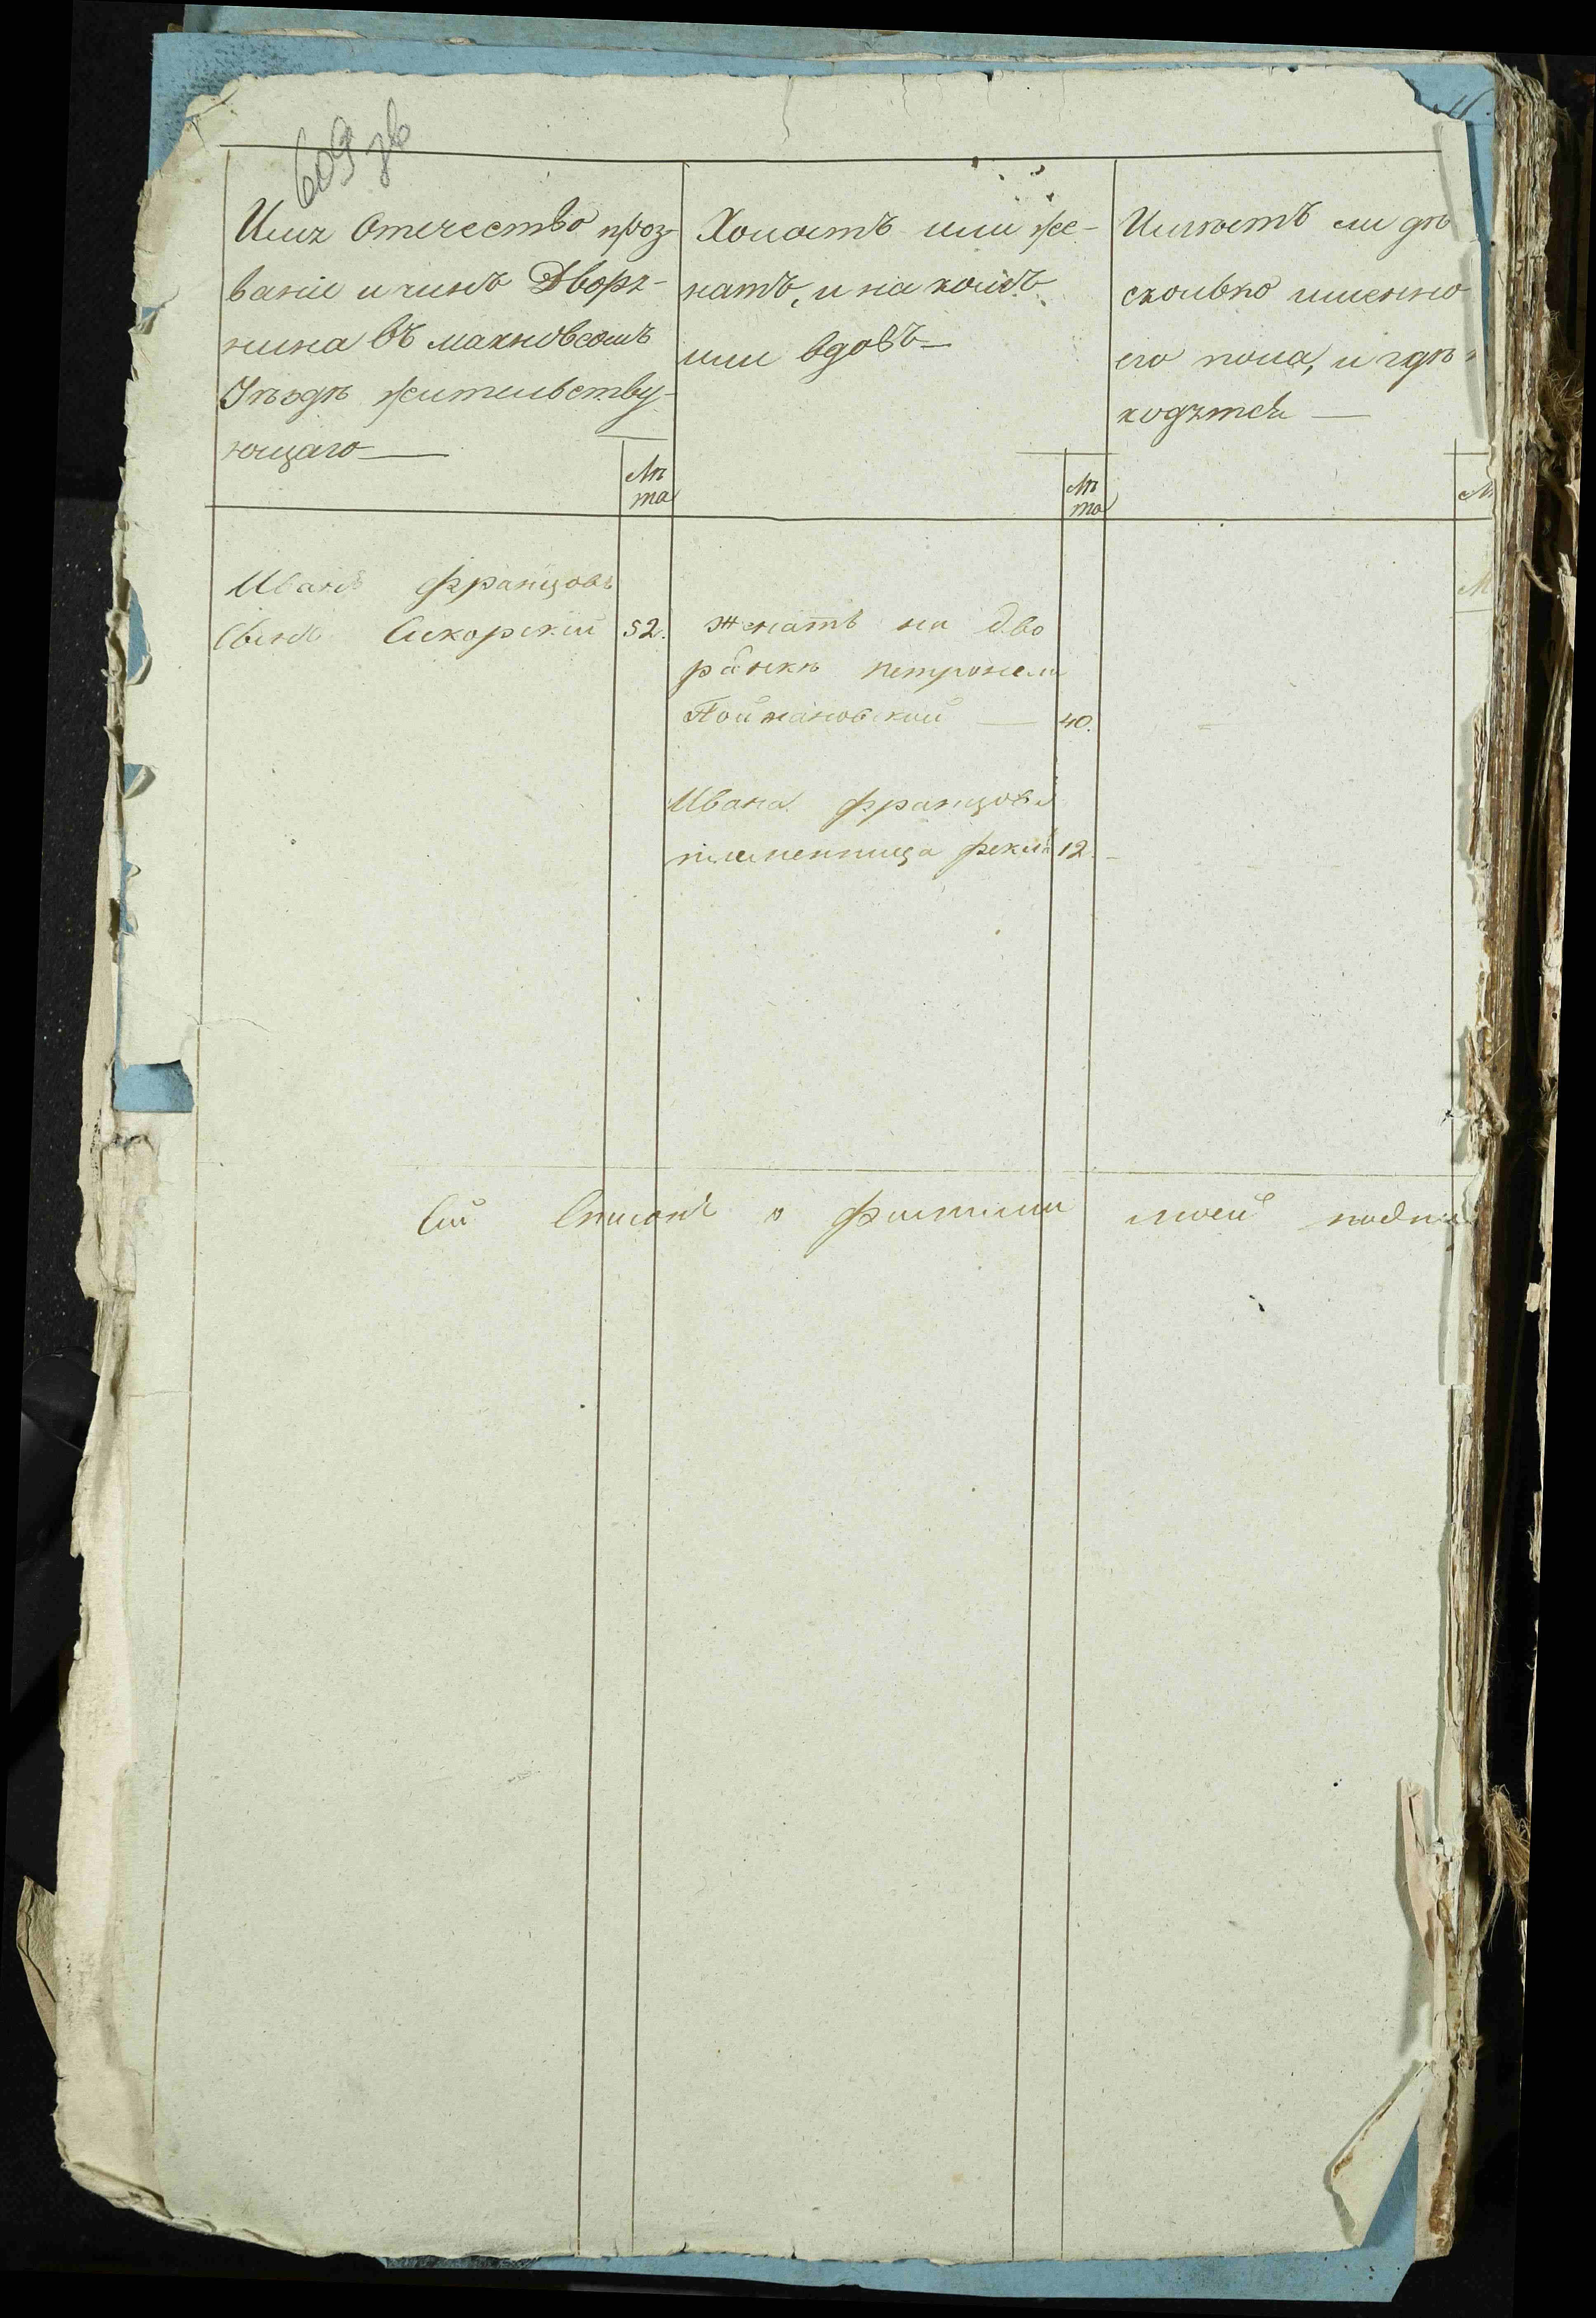 609 зв
Имя Отечество проз-
ваніе и чинъ Дворя-
нина въ махновскомъ
Уѣздѣ жительству-
ющаго —
Лѣ
та
Холостъ или же-
натъ, и на комъ
или вдовъ —
Лѣ
та
Имѣетъ ли дѣ
сколько именно
его пола, и гдѣ
ходятся —
Иванъ францовъ
Сынъ Сикорскій 52.
Женатъ на дво
рянкѣ петронели
Поймановской — 40.
Ивана францова
племенница 12.
Сій Списокъ о фамилии моей подпи